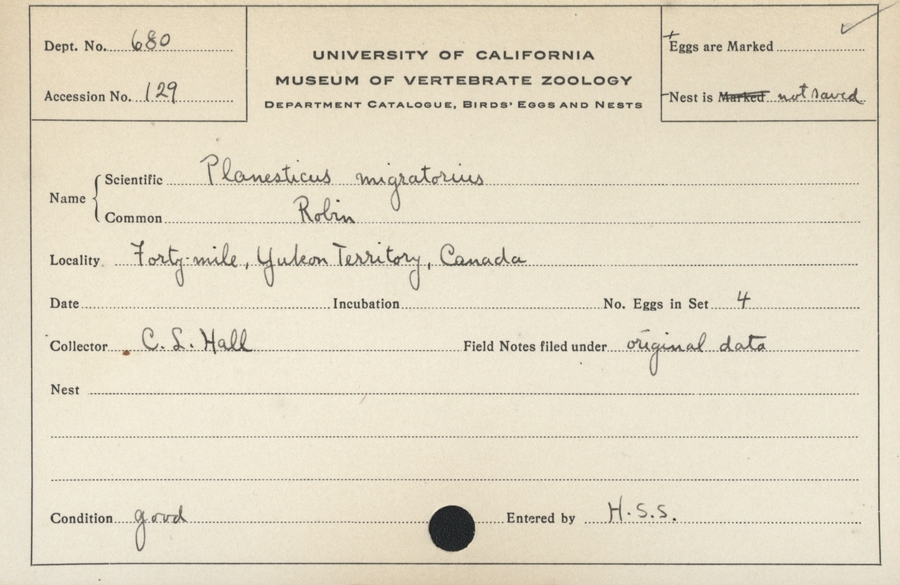 Dept. No. 680
Accession No. 129
UNIVERSITY OF CALIFORNIA
MUSEUM OF VERTEBRATE ZOOLOGY
DEPARTMENT CATALOGUE, BIRDS' EGGS AND NESTS
Eggs are Marked ✓
Nest is Marked not saved
Name { Scientific Planesticus migratorius
Common Robin
Locality Forty-mile, Yukon Territory, Canada
Date Incubation No. Eggs in Set 4
Collector C. L. Hall Field Notes filed under original data
Nest
Condition good Entered by H.S.S.